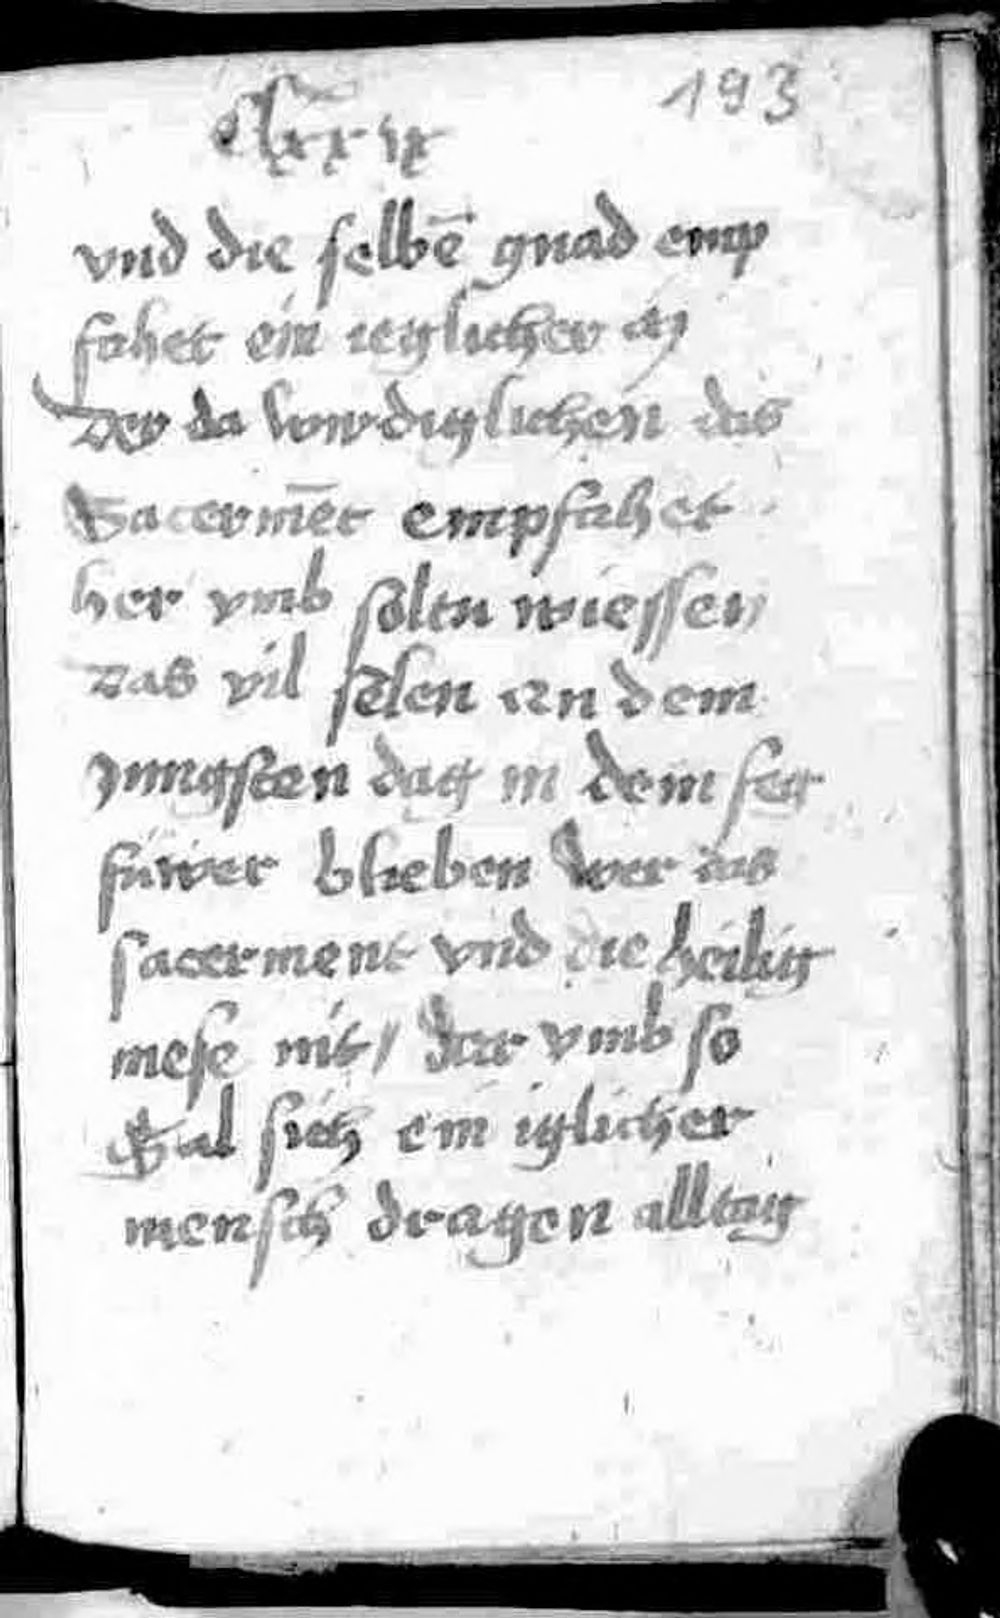 193
clxxix
vnd die selbē gnad emp
fahet ein ieglicher
Der da wirdiglichen das
Sacermēt empfahet
her vmb soltu wiessen
Das vil selen an dem
jungsten dag in dem feg
fuwer blieben wer das
sacerment vnd die heilig
mese nit / dar vmb so
Sal sich ein iglicher
mensch dragen alltag